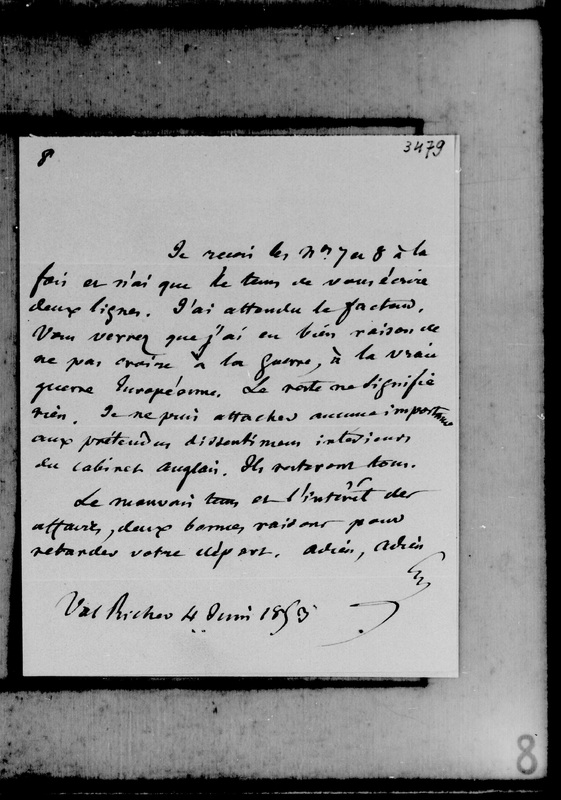 8
3479
Je reçois les Nos 7 et 8 à la
fois et n'ai que le tems de vous écrire
deux lignes. J'ai attendu le facteur.
Vous verrez que j'ai eu bien raison de
ne pas croire à la guerre, à la vraie
guerre Européenne. Le reste ne signifie
rien. Je ne puis attacher aucune importance
aux prétendus dissentimens intérieurs
du cabinet anglais. Ils resteront tous.
Le mauvais tems et l'intérêt des
affaires, deux bonnes raisons pour
retarder votre départ. Adieu, Adieu
Val Richer 4 Juin 1853
8